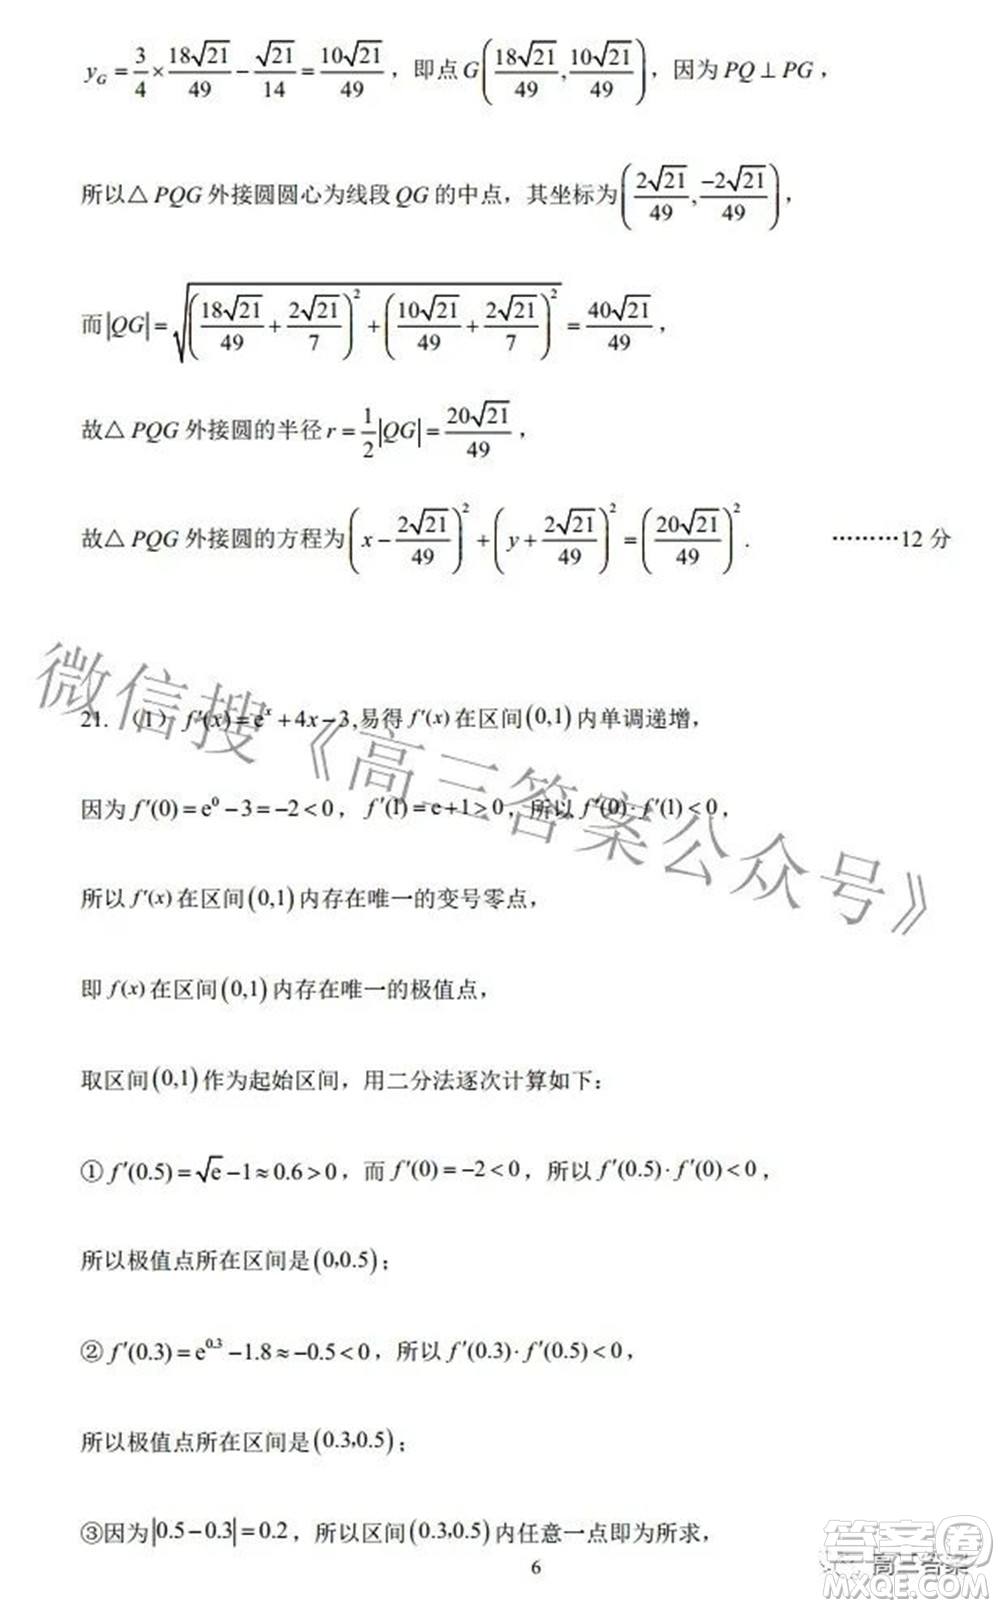 y_G = 3/4 × 18√21/49 − √21/14 = 10√21/49，即点 G(18√21/49, 10√21/49)，因为 PQ ⊥ PG，
所以△ PQG 外接圆圆心为线段 QG 的中点，其坐标为 (2√21/49, −2√21/49)，
而 |QG| = √((18√21/49 + 2√21/7)² + (10√21/49 + 2√21/7)²) = 40√21/49，
故△ PQG 外接圆的半径 r = 1/2 |QG| = 20√21/49，
故△ PQG 外接圆的方程为 (x − 2√21/49)² + (y + 2√21/49)² = (20√21/49)². ………12 分
微信搜《高三答案公众号》
21. （1） f′(x) = eˣ + 4x − 3, 易得 f′(x) 在区间 (0,1) 内单调递增，
因为 f′(0) = e⁰ − 3 = −2 < 0， f′(1) = e + 1 > 0，所以 f′(0)· f′(1) < 0，
所以 f′(x) 在区间 (0,1) 内存在唯一的变号零点，
即 f(x) 在区间 (0,1) 内存在唯一的极值点，
取区间 (0,1) 作为起始区间，用二分法逐次计算如下：
① f′(0.5) = √e − 1 ≈ 0.6 > 0，而 f′(0) = −2 < 0，所以 f′(0.5)· f′(0) < 0，
所以极值点所在区间是 (0,0.5)；
② f′(0.3) = e^0.3 − 1.8 ≈ −0.5 < 0，所以 f′(0.3)· f′(0.5) < 0，
所以极值点所在区间是 (0.3,0.5)；
③因为 |0.5 − 0.3| = 0.2，所以区间 (0.3,0.5) 内任意一点即为所求，
6
高三答案
答案圈
MXQE.COM